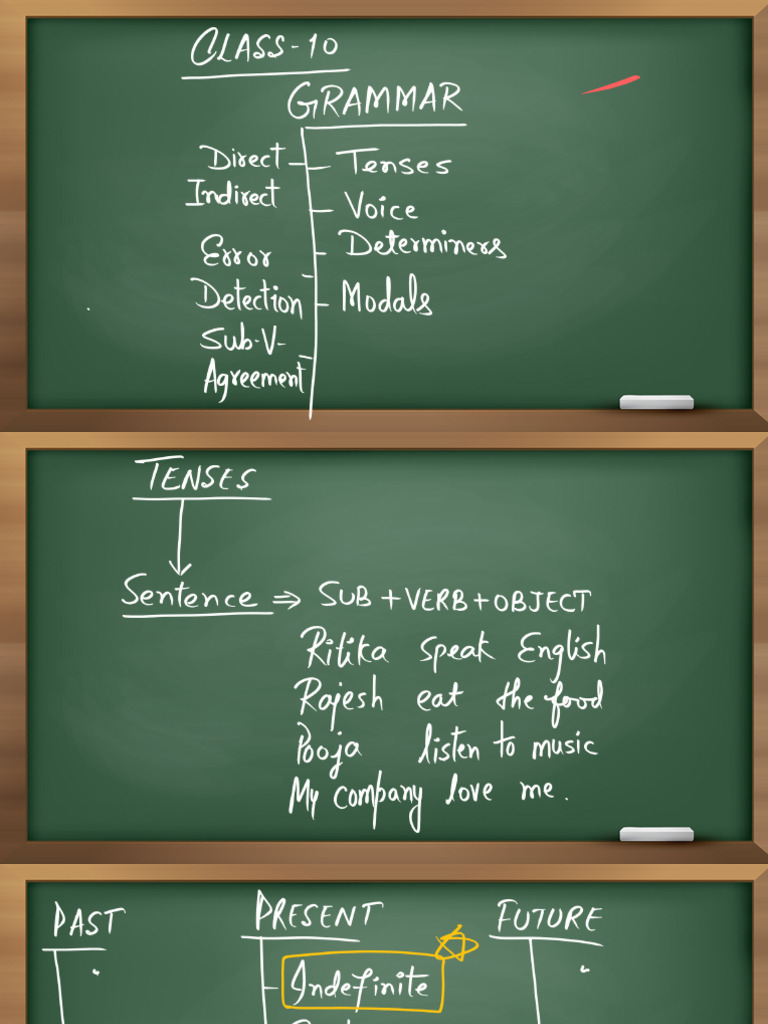 CLASS-10
GRAMMAR
Direct
Indirect
Error
Detection
Sub-V-
Agreement
Tenses
Voice
Determiners
Modals
TENSES
Sentence ⇒ SUB + VERB + OBJECT
Ritika speak English
Rajesh eat the food
Pooja listen to music
My company love me.
PAST PRESENT FUTURE
Indefinite